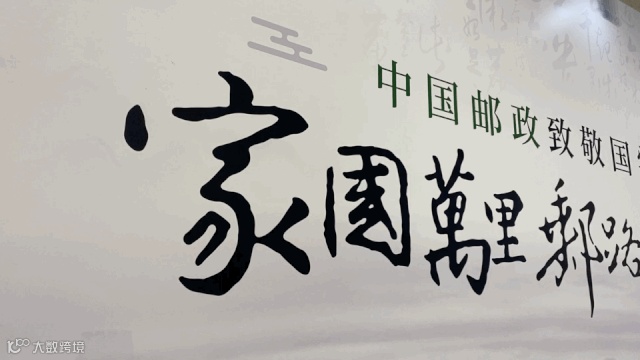 中国邮政致敬国
家國萬里郵路
大数跨境